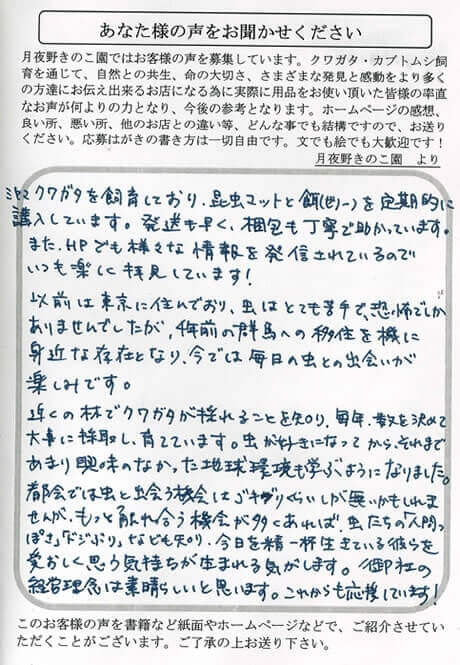 あなた様の声をお聞かせください
月夜野きのこ園ではお客様の声を募集しています。クワガタ・カブトムシ飼
育を通じて、自然との共生、命の大切さ、さまざまな発見と感動をより多く
の方達にお伝え出来るお店になる為に実際に用品をお使い頂いた皆様の率直
なお声が何よりの力となり、今後の参考となります。ホームページの感想、
良い所、悪い所、他のお店との違い等、どんな事でも結構ですので、お送り
ください。応募はがきの書き方は一切自由です。文でも絵でも大歓迎です！
月夜野きのこ園 より
クワガタを飼育しており、昆虫マットと餌(ゼリー)を定期的に
購入しています。発送も早く、梱包も丁寧で助かっています。
また、HPでも様々な情報を発信されているので
いつも楽しく拝見しています！
以前は東京に住んでおり、虫はとても苦手で、恐怖でしか
ありませんでしたが、年前の群馬への移住を機に
身近な存在となり、今では毎日の虫との出会いが
楽しみです。
近くの林でクワガタが採れることを知り、毎年、数を決めて
大事に採取し、育てています。虫が好きになってから、それまで
あまり興味のなかった地球環境も学ぶようになりました。
都会では虫と出会う機会はゴキブリくらいしか無いかもしれま
せんが、もっと触れ合う機会が多くあれば、虫たちの「人間っ
ぽさ」「ドジぶり」なども知り、今日を精一杯生きている彼らを
愛おしく思う気持ちが生まれる気がします。御社の
経営理念は素晴らしいと思います。これからも応援しています！
このお客様の声を書籍など紙面やホームページなどで、ご紹介させてい
ただくことがございます。ご了承の上お送り下さい。